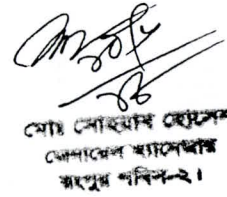 মোঃ সোহরাব হোসেন
জেনারেল ম্যানেজার
রংপুর পবিস-২।